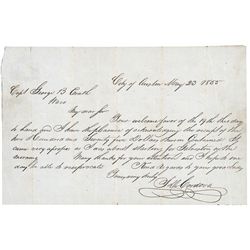 City of Austin May 23 1855
Capt George B Erath
Waco
My dear Sir
Your welcome favor of the 19th this day
to hand and I have the pleasure of acknowledging the receipt of the
two Hundred and Seventy five Dollars therein Enclosed. It
came very apropos as I am about starting for Galveston with the
Many thanks for your attention and I hope one
day be able to reciprocate
Kind regards to your good lady
Yours very truly
J de Cordova